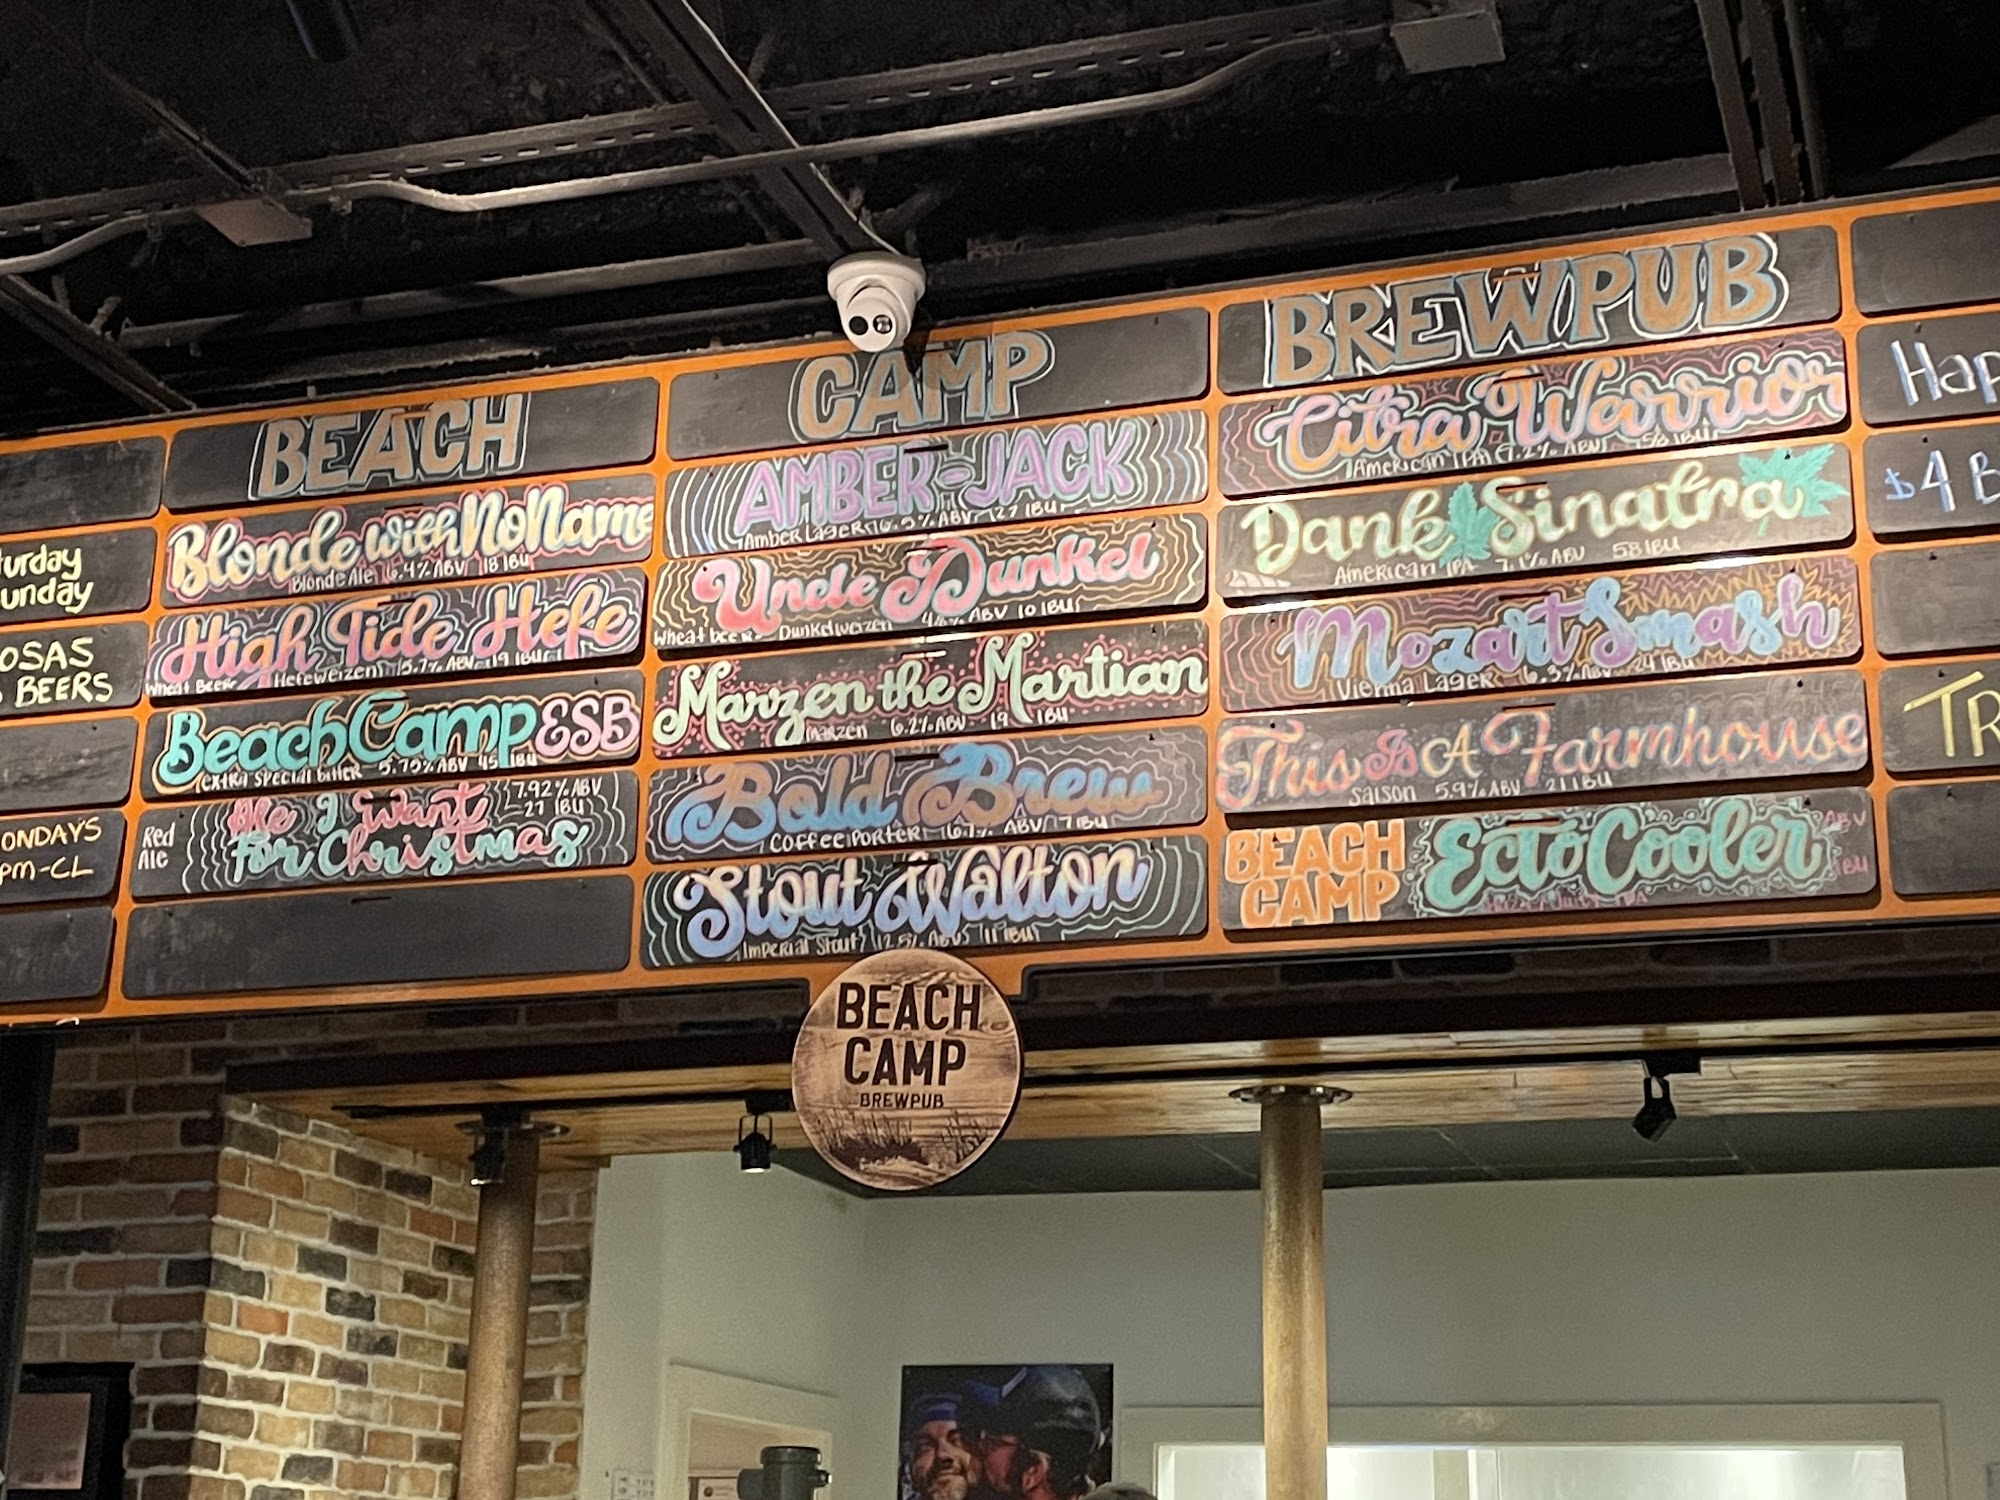 BEACH
CAMP
BREWPUB
urday
unday
OSAS
BEERS
ONDAYS
PM-CL
Blonde with No Name
Blonde Ale 6.4% ABV 18 IBU
High Tide Hefe
Wheat Beer Hefeweizen 5.7% ABV 19 IBU
Beach Camp ESB
extra special bitter 5.75% ABV 45 IBU
Red Ale
Ale I Want
For Christmas
7.92% ABV
27 IBU
AMBER-JACK
Amber Lager 6.5% ABV 27 IBU
Uncle Dunkel
Wheat beer Dunkelweizen ABV 10 IBU
Marzen the Martian
marzen 6.2% ABV 19 IBU
Bold Brew
Coffee Porter ABV 7 IBU
Stout Walton
Imperial Stout 12.5% ABV 11 IBU
Citra Warrior
American IPA 7.2% ABV 58 IBU
Dank Sinatra
American IPA 7.1% ABV 58 IBU
Mozart Smash
Vienna Lager 6.3% ABV 24 IBU
This Is A Farmhouse
Saison 5.9% ABV 21 IBU
BEACH
CAMP
Ecto Cooler
ABV
IBU
Hap
$4 B
TR
BEACH
CAMP
BREWPUB